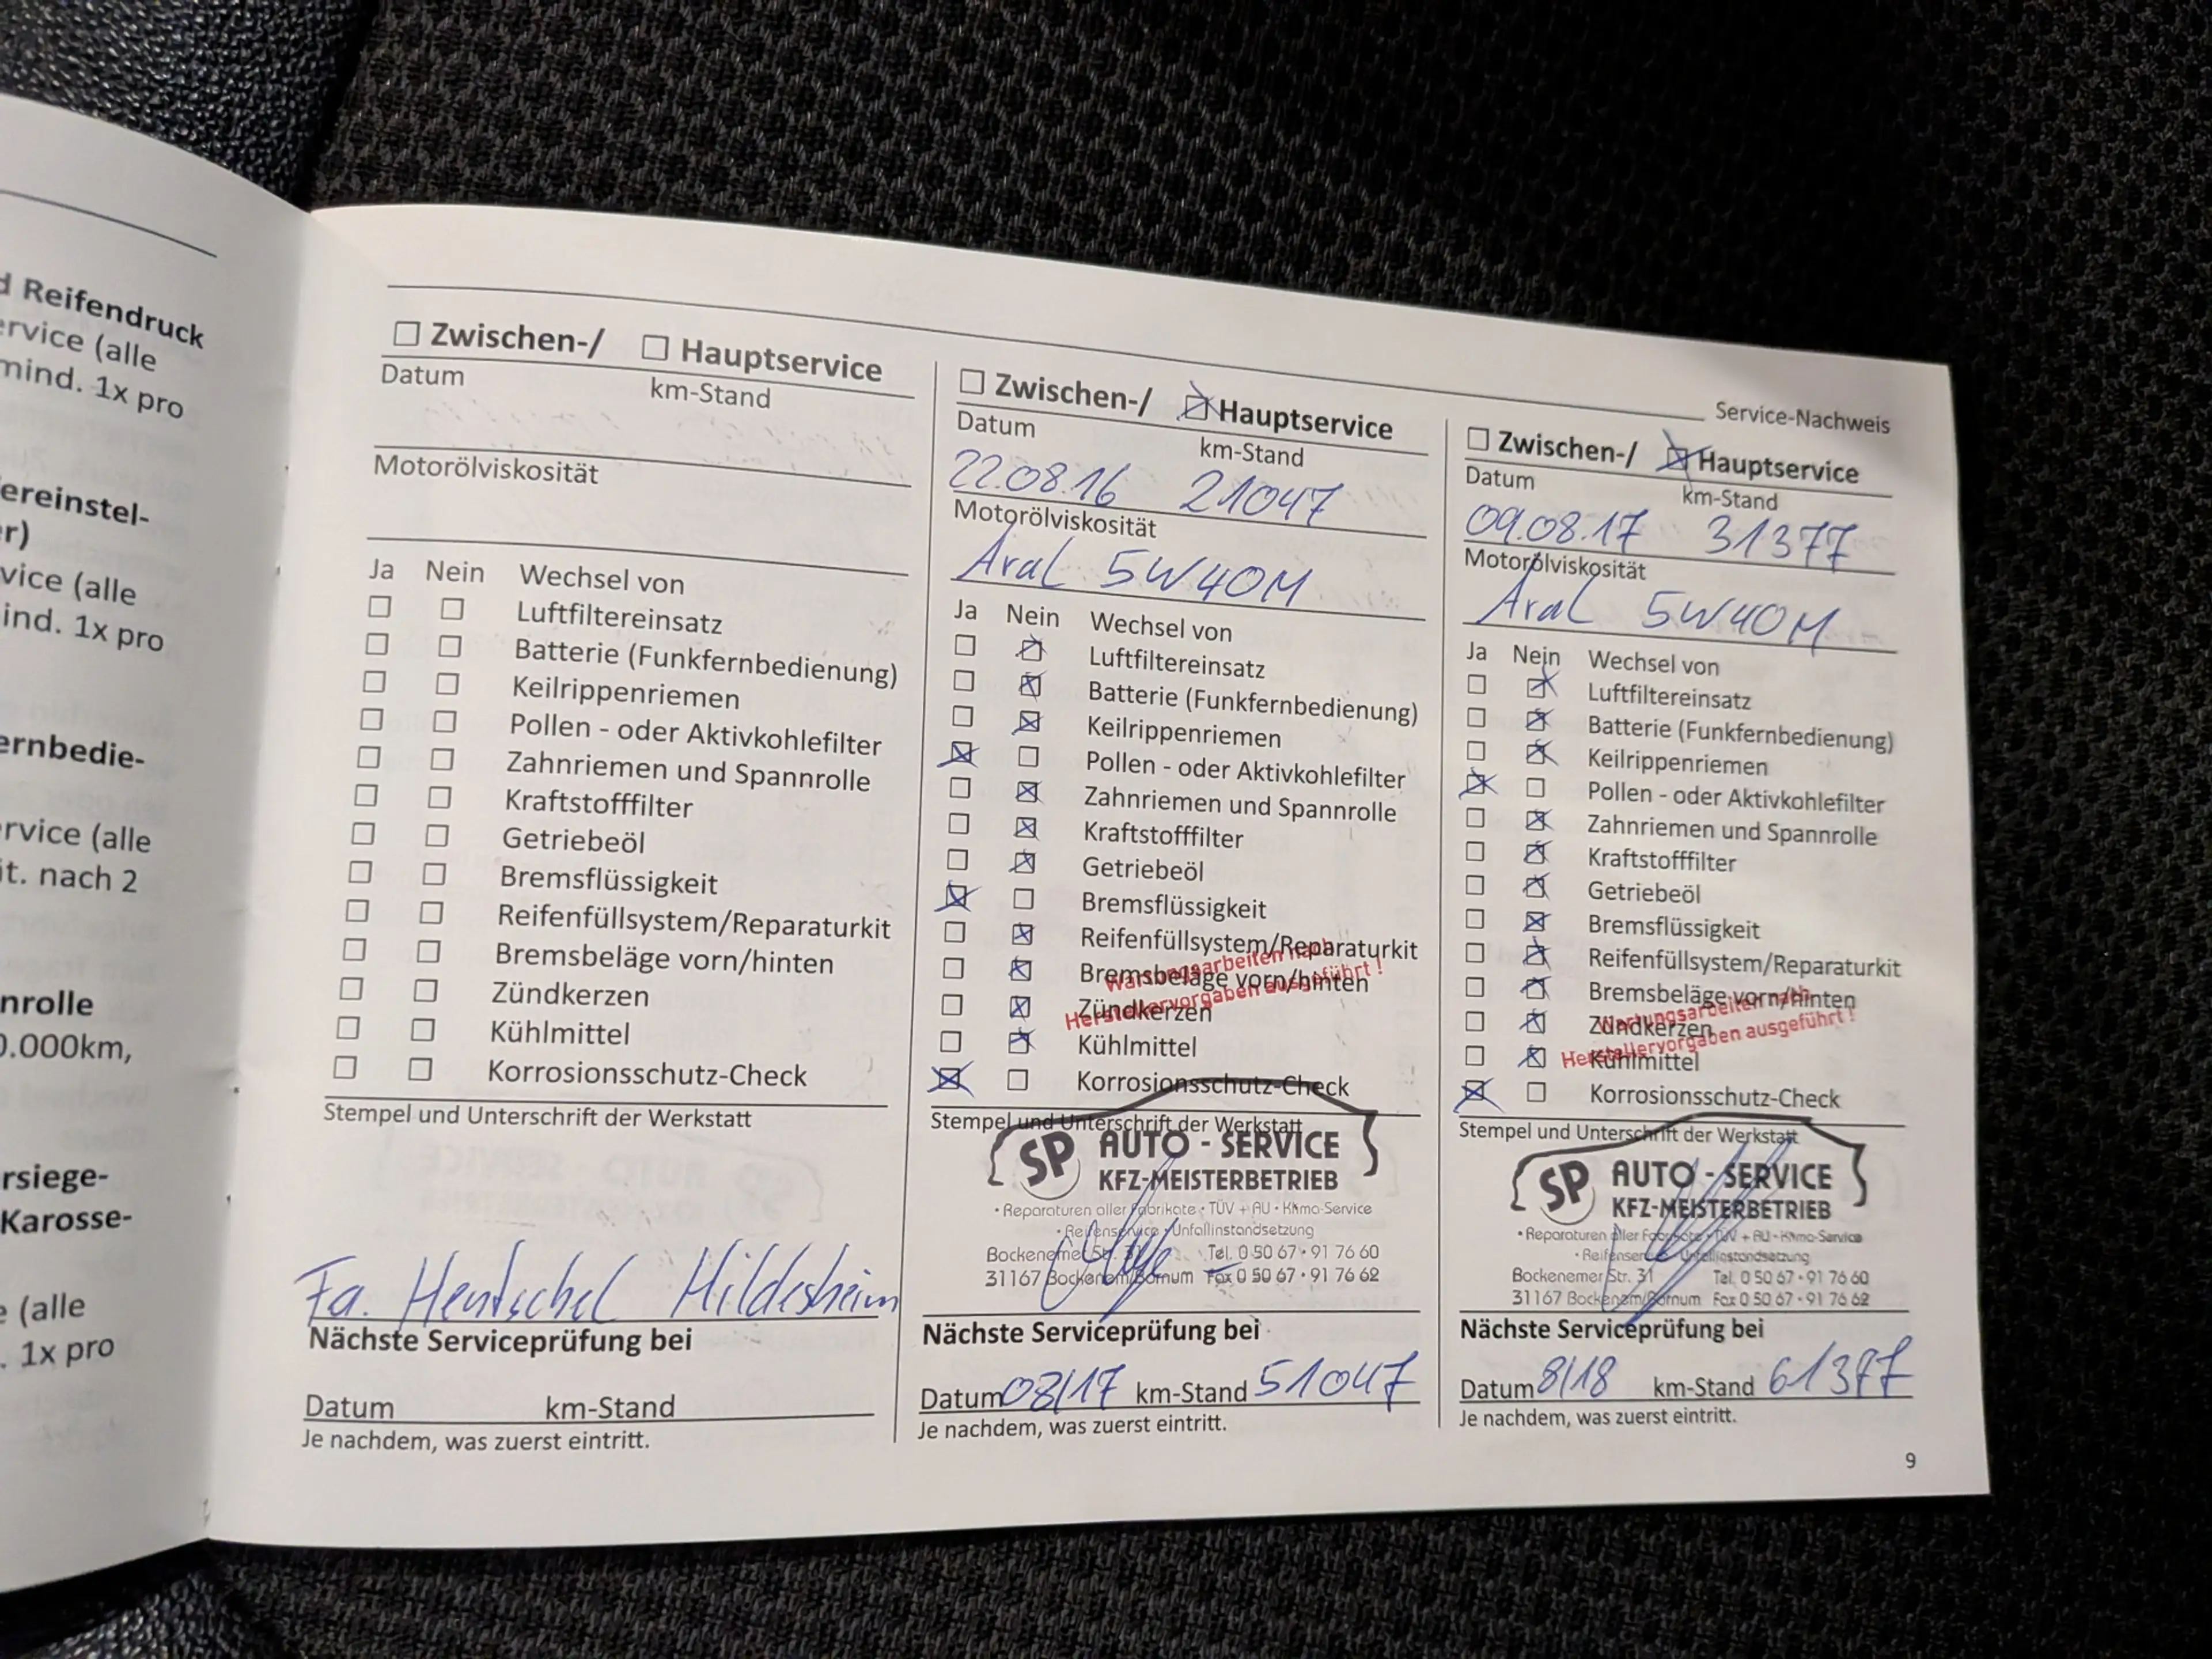 d Reifendruck
ervice (alle
mind. 1x pro
ereinstel-
er)
vice (alle
ind. 1x pro
ernbedie-
rvice (alle
it. nach 2
nrolle
0.000km,
rsiege-
Karosse-
e (alle
. 1x pro
Service-Nachweis
☐ Zwischen-/ ☐ Hauptservice
Datum km-Stand
Motorölviskosität
Ja Nein Wechsel von
☐ ☐ Luftfiltereinsatz
☐ ☐ Batterie (Funkfernbedienung)
☐ ☐ Keilrippenriemen
☐ ☐ Pollen - oder Aktivkohlefilter
☐ ☐ Zahnriemen und Spannrolle
☐ ☐ Kraftstofffilter
☐ ☐ Getriebeöl
☐ ☐ Bremsflüssigkeit
☐ ☐ Reifenfüllsystem/Reparaturkit
☐ ☐ Bremsbeläge vorn/hinten
☐ ☐ Zündkerzen
☐ ☐ Kühlmittel
☐ ☐ Korrosionsschutz-Check
Stempel und Unterschrift der Werkstatt
Fa. Hentschel Hildesheim
Nächste Serviceprüfung bei
Datum km-Stand
Je nachdem, was zuerst eintritt.
☐ Zwischen-/ ☒ Hauptservice
Datum km-Stand
22.08.16 21047
Motorölviskosität
Aral 5W40M
Ja Nein Wechsel von
☐ ☒ Luftfiltereinsatz
☐ ☒ Batterie (Funkfernbedienung)
☐ ☒ Keilrippenriemen
☒ ☐ Pollen - oder Aktivkohlefilter
☐ ☒ Zahnriemen und Spannrolle
☐ ☒ Kraftstofffilter
☐ ☒ Getriebeöl
☒ ☐ Bremsflüssigkeit
☐ ☒ Reifenfüllsystem/Reparaturkit
☐ ☒ Bremsbeläge vorn/hinten
☐ ☒ Zündkerzen
☐ ☒ Kühlmittel
☒ ☐ Korrosionsschutz-Check
Wartungsarbeiten nach
Herstellervorgaben ausgeführt !
Stempel und Unterschrift der Werkstatt
SP AUTO - SERVICE
KFZ-MEISTERBETRIEB
• Reparaturen aller Fabrikate • TÜV + AU • Klima-Service
• Reifenservice • Unfallinstandsetzung
Bockenemer Str. 31 Tel. 0 50 67 • 91 76 60
31167 Bockenem/Bornum Fax 0 50 67 • 91 76 62
Nächste Serviceprüfung bei
Datum 08/17 km-Stand 51047
Je nachdem, was zuerst eintritt.
☐ Zwischen-/ ☒ Hauptservice
Datum km-Stand
09.08.17 31377
Motorölviskosität
Aral 5W40M
Ja Nein Wechsel von
☐ ☒ Luftfiltereinsatz
☐ ☒ Batterie (Funkfernbedienung)
☐ ☒ Keilrippenriemen
☒ ☐ Pollen - oder Aktivkohlefilter
☐ ☒ Zahnriemen und Spannrolle
☐ ☒ Kraftstofffilter
☐ ☒ Getriebeöl
☐ ☒ Bremsflüssigkeit
☐ ☒ Reifenfüllsystem/Reparaturkit
☐ ☒ Bremsbeläge vorn/hinten
☐ ☒ Zündkerzen
☐ ☒ Kühlmittel
☒ ☐ Korrosionsschutz-Check
Wartungsarbeiten nach
Herstellervorgaben ausgeführt !
Stempel und Unterschrift der Werkstatt
SP AUTO - SERVICE
KFZ-MEISTERBETRIEB
• Reparaturen aller Fabrikate • TÜV + AU • Klima-Service
• Reifenservice • Unfallinstandsetzung
Bockenemer Str. 31 Tel. 0 50 67 • 91 76 60
31167 Bockenem/Bornum Fax 0 50 67 • 91 76 62
Nächste Serviceprüfung bei
Datum 8/18 km-Stand 61377
Je nachdem, was zuerst eintritt.
9